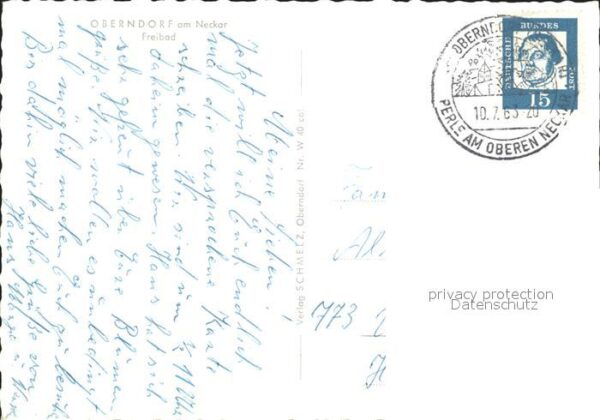 OBERNDORF am Neckar
Freibad
Meine Lieben!
Jetzt will ich Euch endlich
mal die versprochene Karte
schreiben. Wir sind um
daheim gewesen. Hans hat sich
sehr gefreut über Eure Blumen
grüße. Wir wollen es unbedingt
mal möglich machen Euch zu
Bis dahin viele liebe Grüße von
Hans
Verlag SCHMELZ, Oberndorf Nr. W 40 col
DEUTSCHE
BUNDES
POST
15
OBERNDORF
10.7.63-20
PERLE AM OBEREN NECKAR
Fam
773
privacy protection
Datenschutz